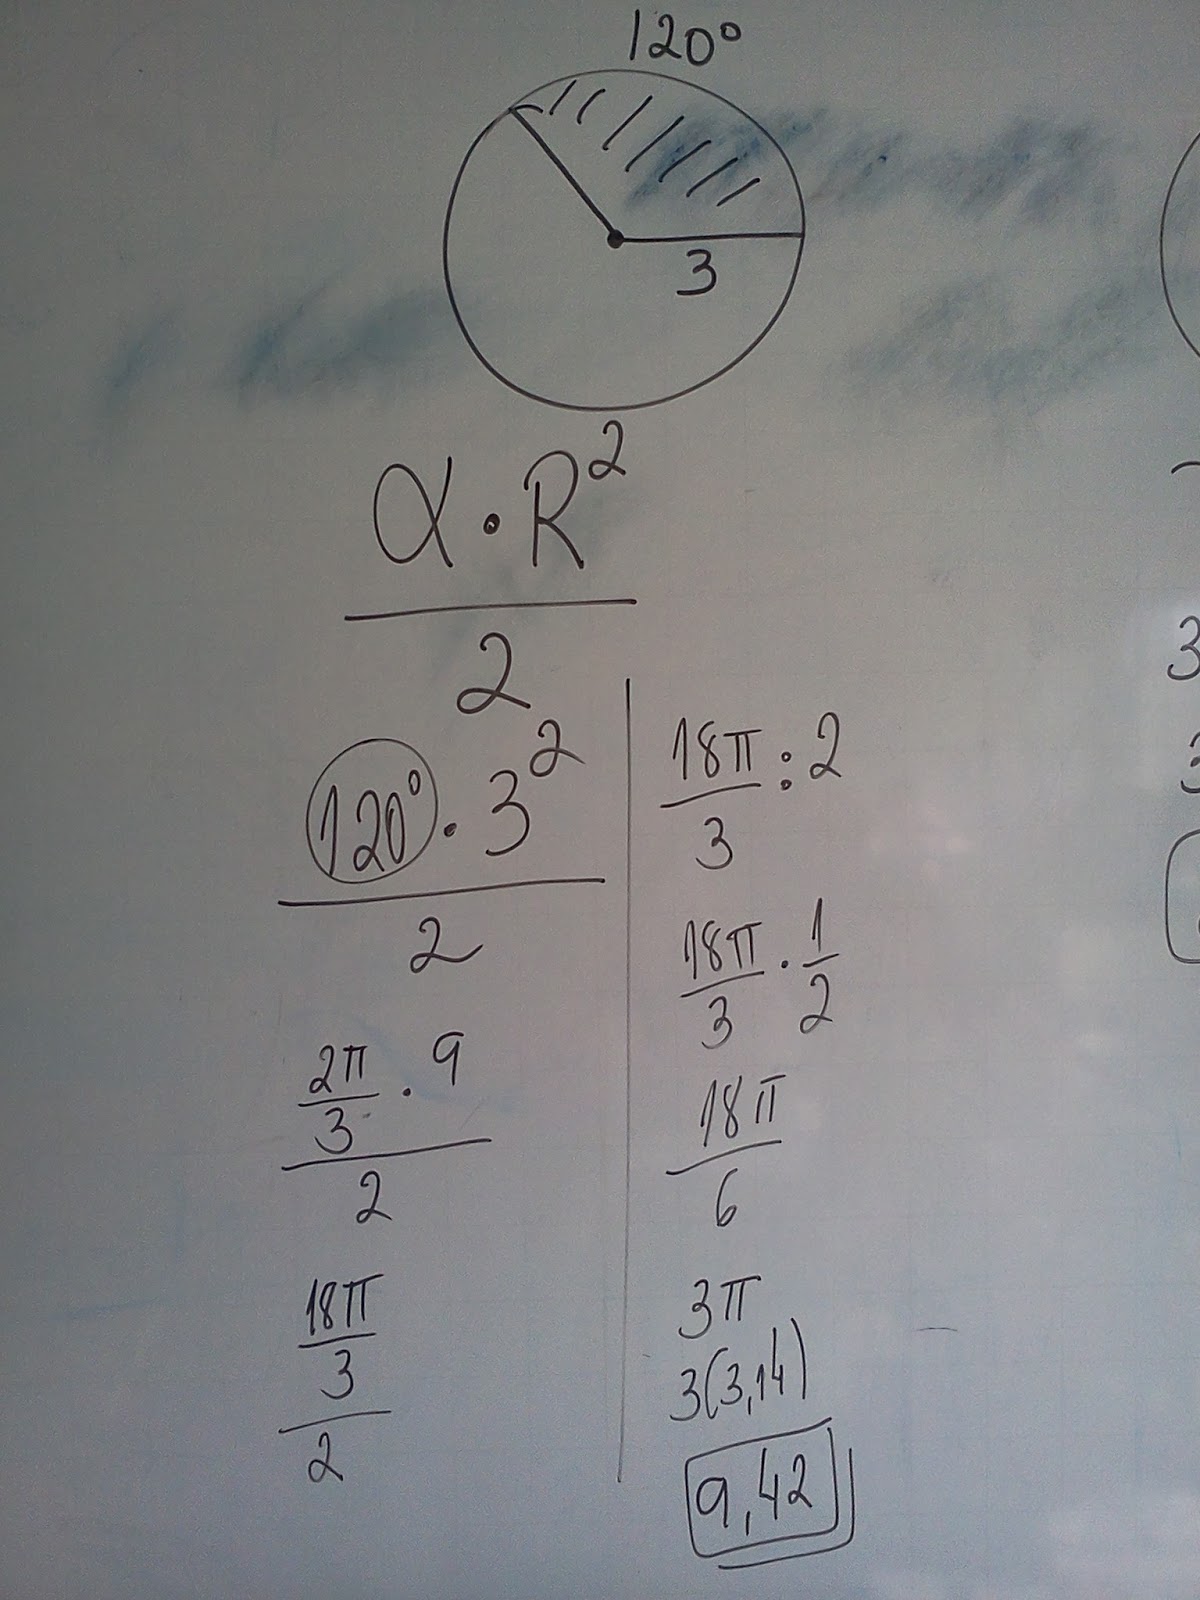 120°
3
α · R²
2
120° · 3²
2
2π/3 · 9
2
18π
3
2
18π/3 : 2
18π/3 · 1/2
18π
6
3π
3(3,14)
9,42
3